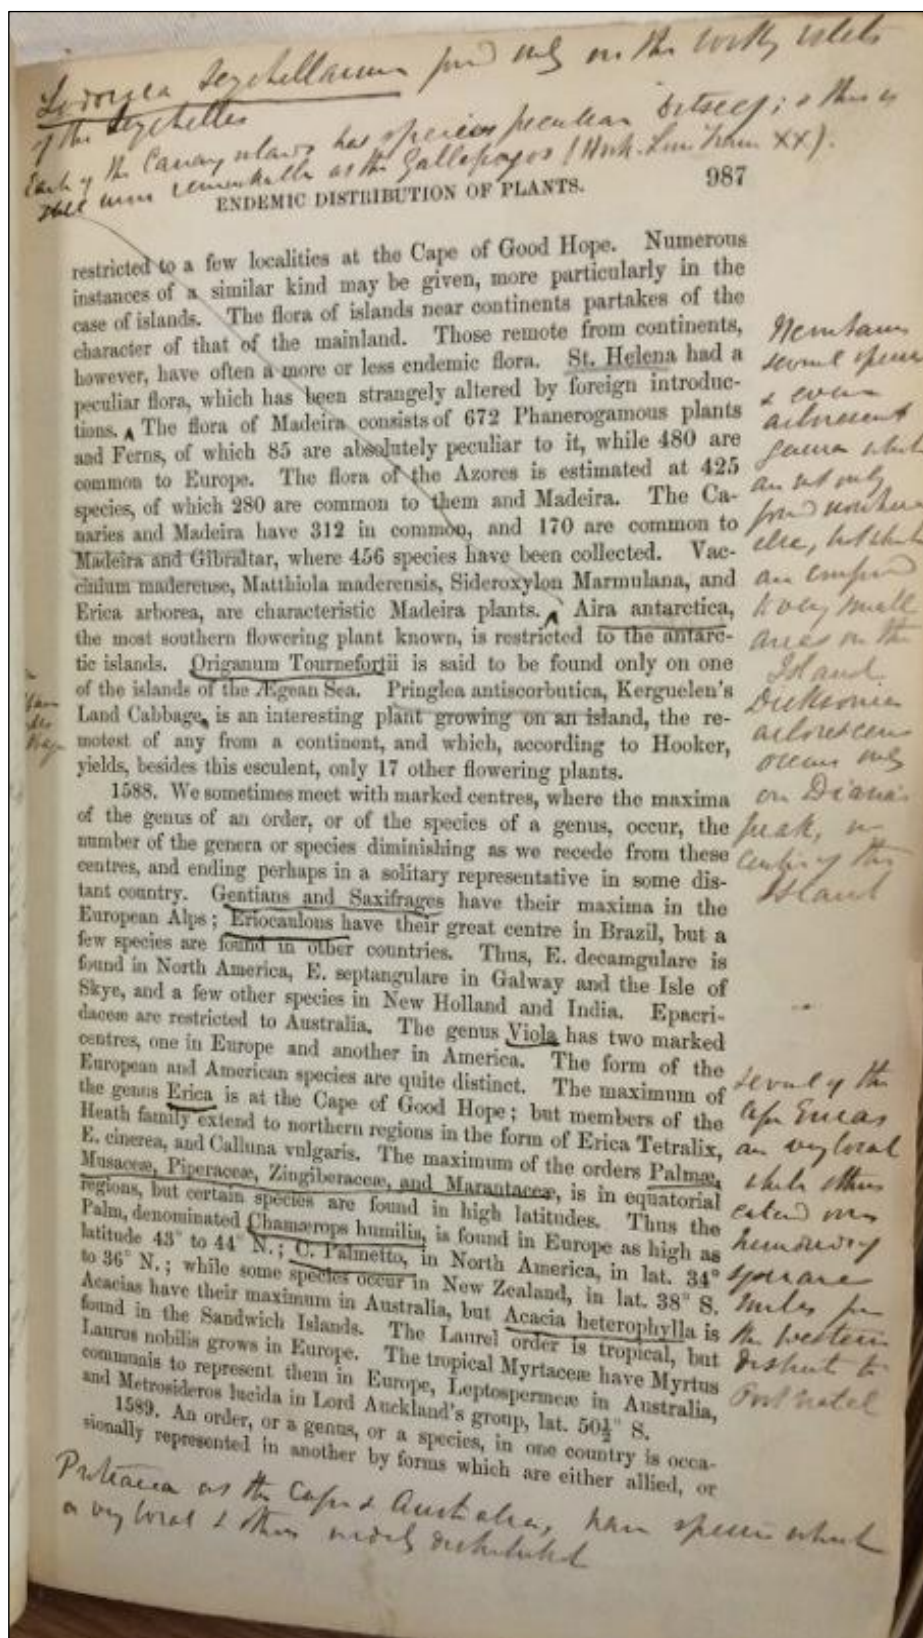 Lodoicea Seychellarum found only on the rocky islets
of the Seychelles
Each of the Canary islands has species peculiar to itself; & this is
still more remarkable as the Gallopagos (Hook. Linn Trans XX).
ENDEMIC DISTRIBUTION OF PLANTS. 987
restricted to a few localities at the Cape of Good Hope. Numerous
instances of a similar kind may be given, more particularly in the
case of islands. The flora of islands near continents partakes of the
character of that of the mainland. Those remote from continents,
however, have often a more or less endemic flora. St. Helena had a
peculiar flora, which has been strangely altered by foreign introduc-
tions. The flora of Madeira consists of 672 Phanerogamous plants
and Ferns, of which 85 are absolutely peculiar to it, while 480 are
common to Europe. The flora of the Azores is estimated at 425
species, of which 280 are common to them and Madeira. The Ca-
naries and Madeira have 312 in common, and 170 are common to
Madeira and Gibraltar, where 456 species have been collected. Vac-
cinium maderense, Matthiola maderensis, Sideroxylon Marmulana, and
Erica arborea, are characteristic Madeira plants. Aira antarctica,
the most southern flowering plant known, is restricted to the antarc-
tic islands. Origanum Tournefortii is said to be found only on one
of the islands of the Ægean Sea. Pringlea antiscorbutica, Kerguelen's
Land Cabbage, is an interesting plant growing on an island, the re-
motest of any from a continent, and which, according to Hooker,
yields, besides this esculent, only 17 other flowering plants.
1588. We sometimes meet with marked centres, where the maxima
of the genus of an order, or of the species of a genus, occur, the
number of the genera or species diminishing as we recede from these
centres, and ending perhaps in a solitary representative in some dis-
tant country. Gentians and Saxifrages have their maxima in the
European Alps; Eriocaulons have their great centre in Brazil, but a
few species are found in other countries. Thus, E. decamgulare is
found in North America, E. septangulare in Galway and the Isle of
Skye, and a few other species in New Holland and India. Epacri-
daceæ are restricted to Australia. The genus Viola has two marked
centres, one in Europe and another in America. The form of the
European and American species are quite distinct. The maximum of
the genus Erica is at the Cape of Good Hope; but members of the
Heath family extend to northern regions in the form of Erica Tetralix,
E. cinerea, and Calluna vulgaris. The maximum of the orders Palmæ,
Musaceæ, Piperaceæ, Zingiberaceæ, and Marantaceæ, is in equatorial
regions, but certain species are found in high latitudes. Thus the
Palm, denominated Chamærops humilis, is found in Europe as high as
latitude 43° to 44° N.; C. Palmetto, in North America, in lat. 34°
to 36° N.; while some species occur in New Zealand, in lat. 38° S.
Acacias have their maximum in Australia, but Acacia heterophylla is
found in the Sandwich Islands. The Laurel order is tropical, but
Laurus nobilis grows in Europe. The tropical Myrtaceæ have Myrtus
communis to represent them in Europe, Leptospermeæ in Australia,
and Metrosideros lucida in Lord Auckland's group, lat. 50½° S.
1589. An order, or a genus, or a species, in one country is occa-
sionally represented in another by forms which are either allied, or
several species
& even
arborescent
genera which
are not only
found nowhere
else, but which
are confined
to very small
areas on the
Island
Dicksonia
arborescens
occurs only
on Diana's
peak, in
centre of the
Island
several of the
Cape Ericas
are very local
while others
extend over
hundreds of
square
miles from
the western
district to
Port Natal
Proteacea as the Cape & Australia, have species which
are very local & others widely distributed